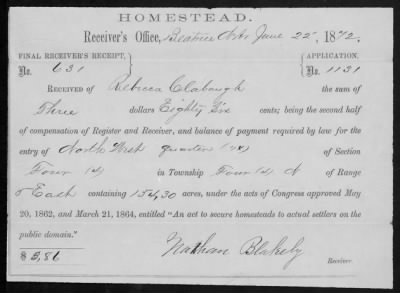 HOMESTEAD.
Receiver's Office, Beatrice Nebr June 22, 1872.
FINAL RECEIVER'S RECEIPT, APPLICATION.
No. 631 No. 1131
RECEIVED OF Rebecca Clabaugh the sum of
Three dollars Eighty Six cents; being the second half
of compensation of Register and Receiver, and balance of payment required by law for the
entry of North West quarter (1/4) of Section
Four (4) in Township Four (4) N of Range
East containing 154,30 acres, under the acts of Congress approved May
20, 1862, and March 21, 1864, entitled "An act to secure homesteads to actual settlers on the
public domain."
$ 3,86 Nathan Blakely
Receiver.